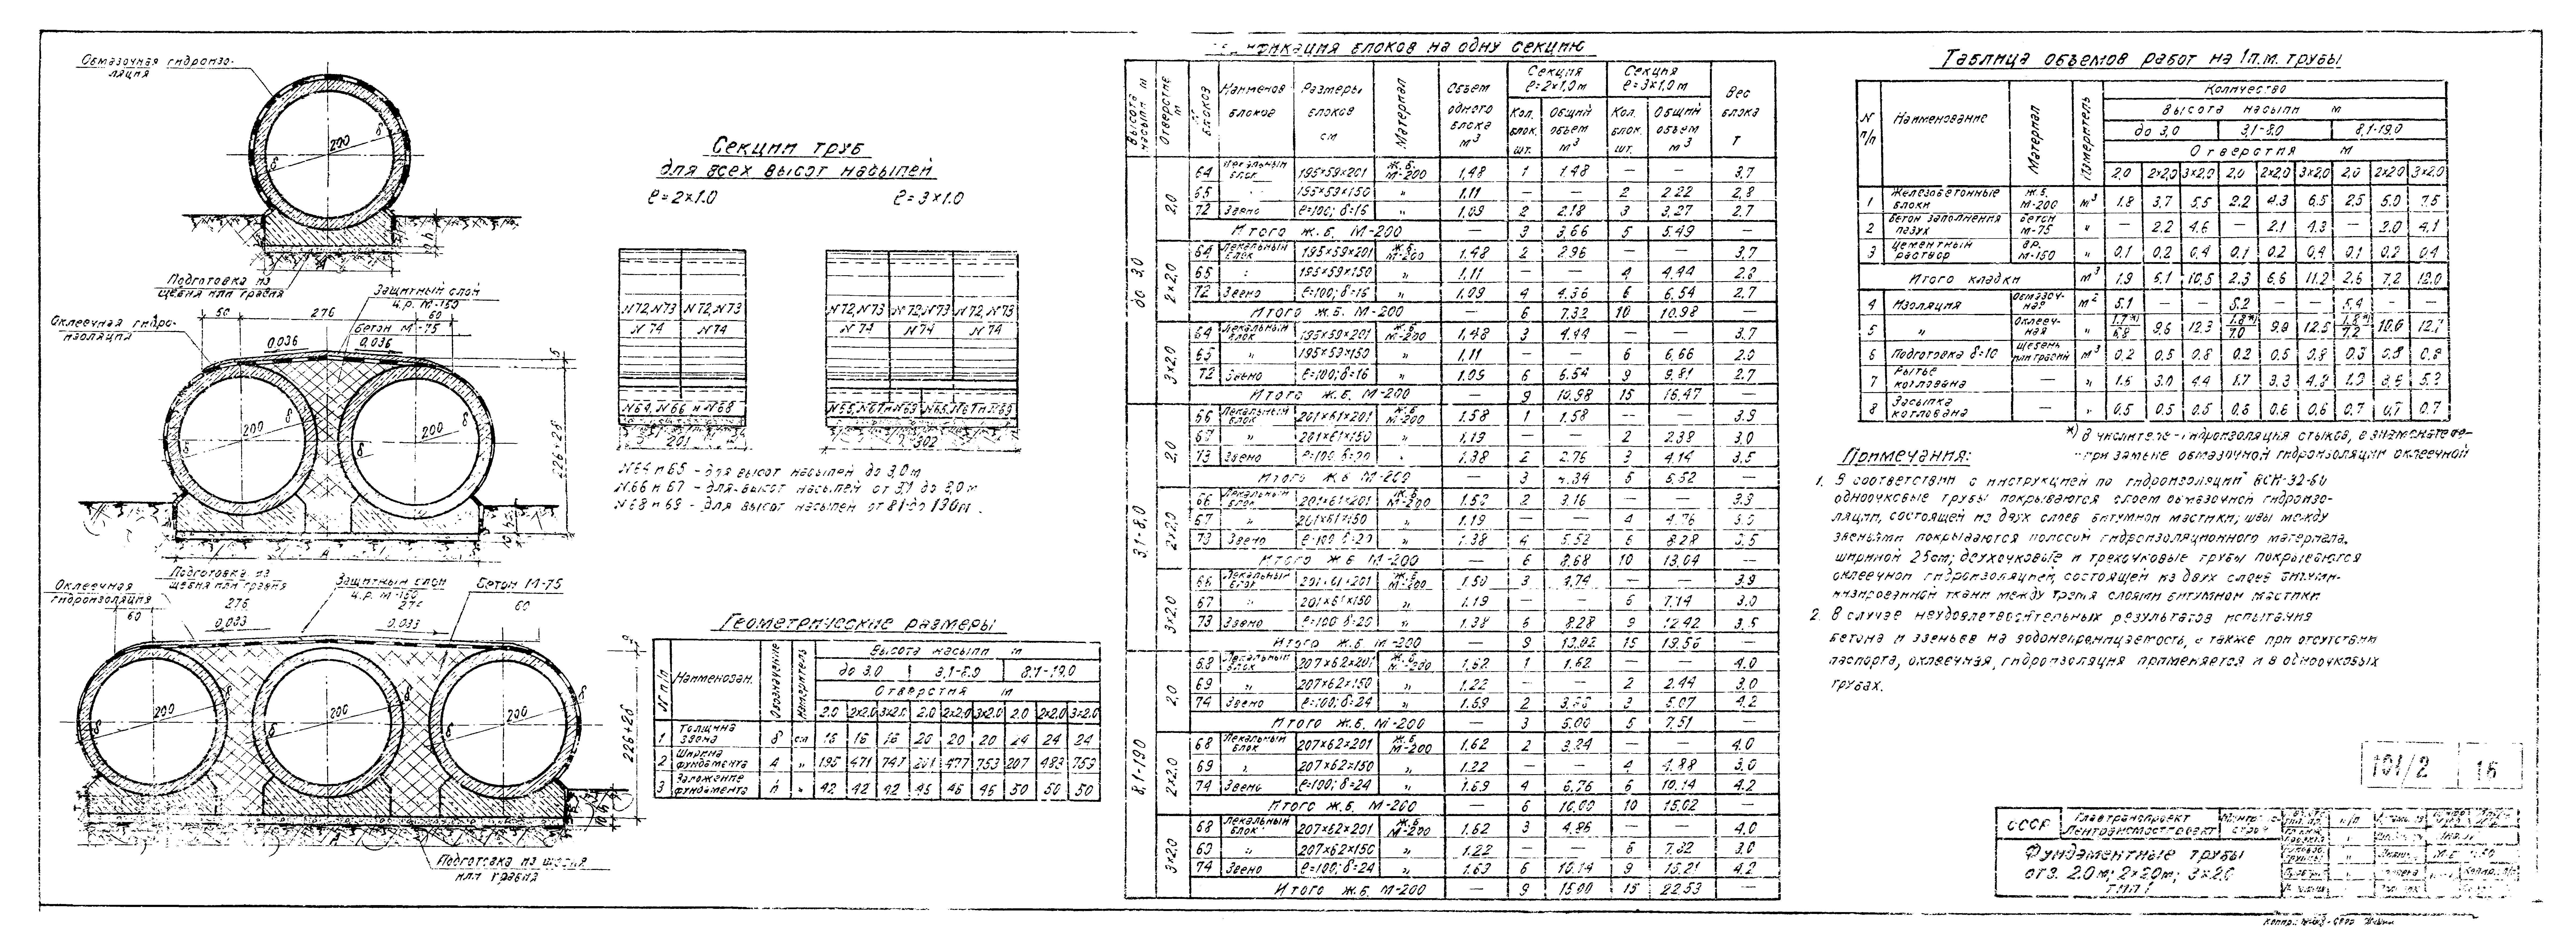 Обмазочная гидроизо-
ляция
200
δ
δ
h
Подготовка из
щебня или гравия
Защитный слой
ц.р. М-150
Оклеечная гидро-
изоляция
50
276
60
Бетон М-75
0,036
0,036
200
200
δ
δ
226+2δ
А
Оклеечная
гидроизоляция
Подготовка из
щебня или гравия
Защитный слой
ц.р. М-150
Бетон М-75
60
276
276
60
0,033
0,033
200
200
200
226+2δ
Подготовка из щебня
или гравия
Секции труб
для всех высот насыпей
ℓ=2×1.0
ℓ=3×1.0
N72,N73 N72,N73
N74 N74
N64, N66 и N68
201
N72,N73 N72,N73 N72,N73
N74 N74 N74
302
N64 и 65 - для высот насыпей до 3,0м
N66 и 67 - для высот насыпей от 3,1 до 8,0м
N68 и 69 - для высот насыпей от 8,1 до 19,0м.
Геометрические размеры
N п/п Наименован. Обозначение Измеритель Высота насыпи м
до 3,0 3,1-8,0 8,1-19,0
Отверстия м
2.0 2×2.0 3×2.0 2.0 2×2.0 3×2.0 2.0 2×2.0 3×2.0
1 Толщина звена δ см 16 16 16 20 20 20 24 24 24
2 Ширина фундамента А " 195 471 747 201 477 753 207 483 759
3 Заложение фундамента h " 42 42 42 46 46 46 50 50 50
фикация блоков на одну секцию
Высота насыпи м Отверстие м N блоков Наименов блоков Размеры блоков см Материал Объем одного блока м³ Секция ℓ=2×1,0м Секция ℓ=3×1,0м Вес блока Т
Кол. блок. шт. Общий объем м³ Кол. блок. шт. Общий объем м³
до 3,0
2,0
64 Лекальный блок 195×59×201 Ж.б. М-200 1,48 1 1.48 — — 3,7
65 " 195×59×150 " 1.11 — — 2 2.22 2,8
72 Звено ℓ=100; δ=16 " 1,09 2 2.18 3 3,27 2.7
Итого Ж.Б. М-200 — 3 3,66 5 5,49 —
2×2,0
64 Лекальный блок 195×59×201 Ж.б. М-200 1.48 2 2.96 — — 3.7
65 " 195×59×150 " 1,11 — — 4 4,44 2.8
72 Звено ℓ=100; δ=16 " 1,09 4 4.36 6 6.54 2,7
Итого Ж.Б. М-200 — 6 7.32 10 10.98 —
3×2,0
64 Лекальный блок 195×59×201 Ж.б. М-200 1,48 3 4.44 — — 3.7
65 " 195×59×150 " 1,11 — — 6 6,66
72 Звено ℓ=100; δ=16 " 1.09 6 6.54 9 9,81 2.7
Итого Ж.Б. М-200 — 9 10,98 15 16,47 —
3,1-8,0
2,0
66 Лекальный блок 201×61×201 Ж.б. М-200 1.58 1 1.58 — — 3.9
67 " 201×61×150 " 1,19 — — 2 2.38 3,0
73 Звено ℓ=100; δ=20 " 1.38 2 2.76 3 4.14 3,5
Итого Ж.Б. М-200 — 3 4.34 5 6,52 —
2×2,0
66 Лекальный блок 201×61×201 Ж.б. М-200 1.58 2 3.16 — — 3.9
67 " 201×61×150 " 1.19 — — 4 4.76 3,0
73 Звено ℓ=100; δ=20 " 1.38 4 5.52 6 8.28 3.5
Итого Ж.Б. М-200 — 6 8,68 10 13,04 —
3×2,0
66 Лекальный блок 201×61×201 Ж.б. М-200 3 4,74 — — 3.9
67 " 201×61×150 " 1.19 — — 6 7.14 3.0
73 Звено ℓ=100; δ=20 " 1.38 6 8.28 9 12.42 3,5
Итого Ж.Б. М-200 — 9 15 19.56 —
8,1-19,0
2,0
68 Лекальный блок 207×62×201 Ж.б. М-200 1.62 1 1.62 — — 4,0
69 " 207×62×150 " 1.22 — — 2 2.44 3,0
74 Звено ℓ=100; δ=24 " 1.69 2 3,38 3 5,07 4,2
Итого Ж.Б. М-200 — 3 5.00 5 7,51 —
2×2,0
68 Лекальный блок 207×62×201 Ж.б. М-200 1.62 2 3.24 — — 4.0
69 " 207×62×150 " 1.22 — — 4 4.88 3.0
74 Звено ℓ=100; δ=24 " 1.69 4 6,76 6 10.14 4.2
Итого Ж.Б. М-200 — 6 10,00 10 15,02 —
3×2,0
68 Лекальный блок 207×62×201 Ж.б. М-200 1.62 3 4,86 — — 4,0
69 " 207×62×150 " 1.22 — — 6 7,32 3.0
74 Звено ℓ=100; δ=24 " 1.69 6 10.14 9 15,21 4,2
Итого Ж.Б. М-200 — 9 15.00 15 22.53 —
Таблица объемов работ на 1п.м. трубы
N п/п Наименование Материал Измеритель Количество
Высота насыпи м
до 3,0 3,1-8,0 8,1-19,0
Отверстия м
2,0 2×2,0 3×2,0 2,0 2×2,0 3×2,0 2,0 2×2,0 3×2,0
1 Железобетонные блоки ж.б. М-200 м³ 1.8 3,7 5,5 2.2 4.3 6,5 2,5 5.0 7.5
2 Бетон заполнения пазух бетон М-75 " — 2.2 4.6 — 2.1 4.3 — 2.0 4,1
3 Цементный раствор ц.р. М-150 " 0,1 0,2 0,4 0,1 0,2 0,4 0,1 0,2 0,4
Итого кладки м³ 1.9 6,1 10,5 2.3 6,6 11.2 2,6 7,2 12.0
4 Изоляция обмазоч-ная м² 5.1 — — 5.2 — — 5.4 — —
5 " оклееч-ная " 1.7*)/6,8 9,6 12.3 1.8*)/7.0 9.9 12.5 1,8*)/7.2 10,0 12,7
6 Подготовка δ=10 щебень или гравий м³ 0.2 0,5 0,8 0.2 0,5 0,8 0.3 0,8
7 Рытье котлована — " 1.6 3,0 4.4 1.7 3.3 1.9
8 Засыпка котлована — " 0.5 0,5 0,5 0,6 0,6 0,6 0,7 0,7 0,7
*) В числителе-гидроизоляция стыков, в знаменателе-
при замене обмазочной гидроизоляции оклеечной
Примечания:
1. В соответствии с инструкцией по гидроизоляции ВСН-32-60
одноочковые трубы покрываются слоем обмазочной гидроизо-
ляции, состоящей из двух слоев битумной мастики; швы между
звеньями покрываются полосой гидроизоляционного материала,
шириной 25см; двухочковые и трехочковые трубы покрываются
оклеечной гидроизоляцией, состоящей из двух слоев битуми-
низированной ткани между тремя слоями битумной мастики
2. В случае неудовлетворительных результатов испытания
бетона и звеньев на водонепроницаемость, а также при отсутствии
паспорта, оклеечная, гидроизоляция применяется и в одноочковых
трубах.
101/2 16
СССР Главтранспроект Лентрансмостпроект
Фундаментные трубы
отв. 2.0м; 2×2.0м; 3×2.0
ТИП I